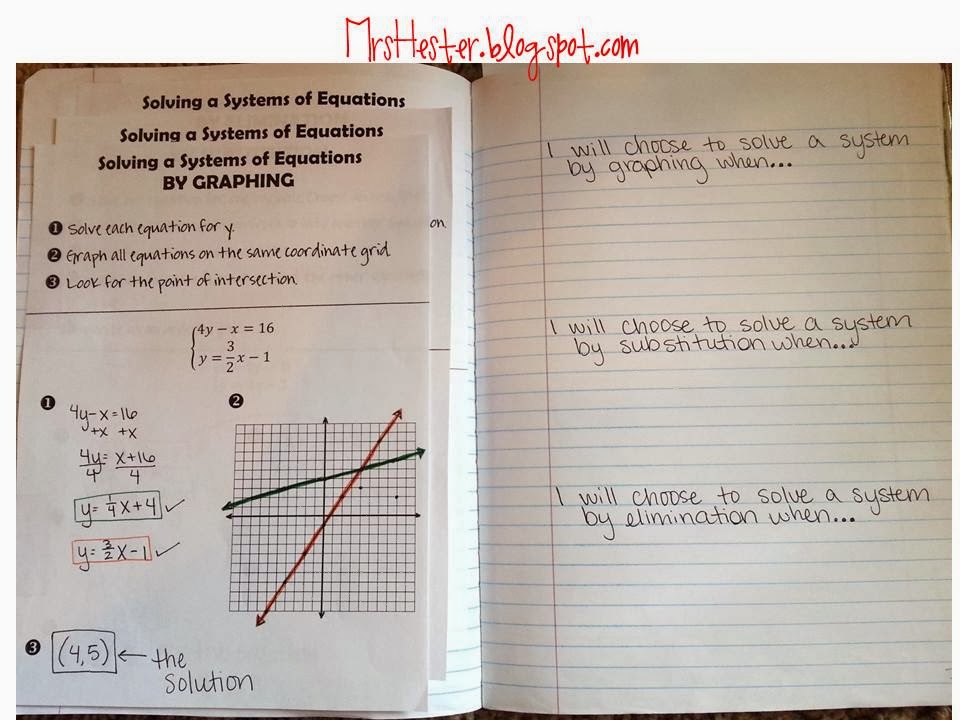 MrsHester.blogspot.com
Solving a Systems of Equations
Solving a Systems of Equations
Solving a Systems of Equations
BY GRAPHING
❶ Solve each equation for y.
on.
❷ Graph all equations on the same coordinate grid
❸ Look for the point of intersection.
4y − x = 16
y = 3/2 x − 1
❶
4y-x=16
+x +x
4y = x+16
4 4
y = 1/4 x + 4 ✓
y = 3/2 x - 1 ✓
❷
❸ (4,5) ← the
solution
I will choose to solve a system
by graphing when...
I will choose to solve a system
by substitution when...
I will choose to solve a system
by elimination when...